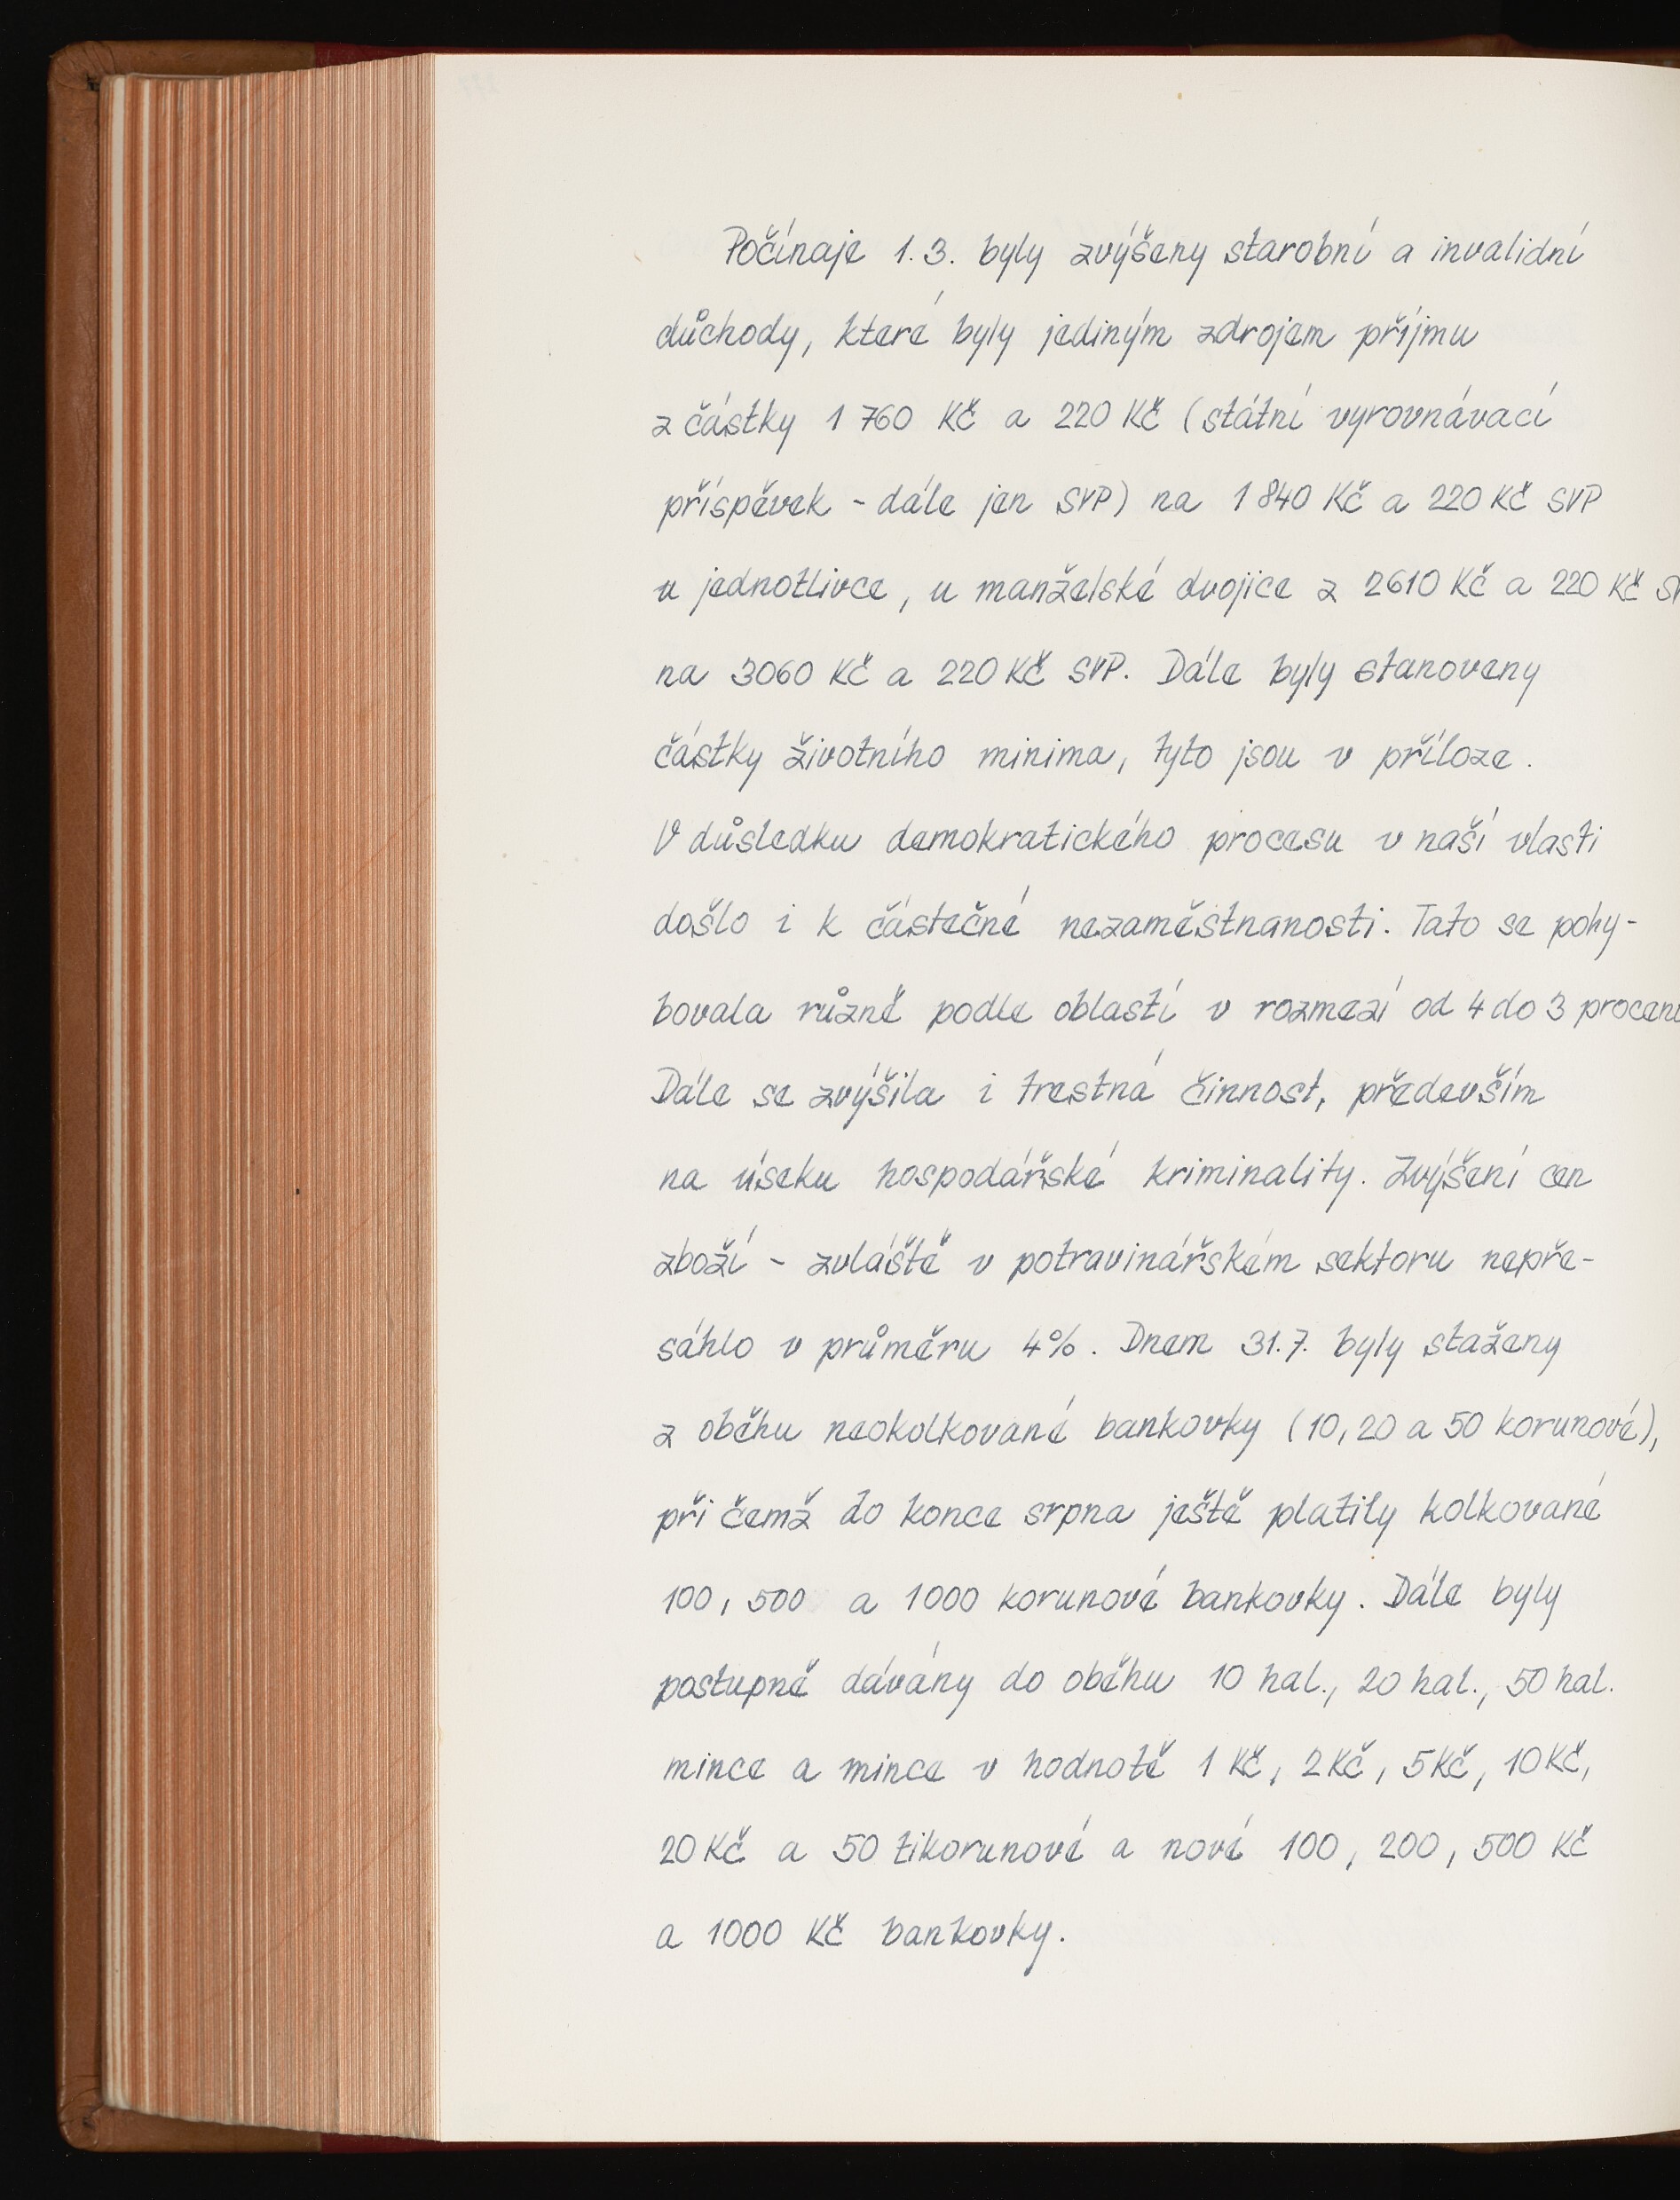 Počínaje 1. 3. byly zvýšeny starobní a invalidní
důchody, které byly jediným zdrojem příjmu
z částky 1 760 Kč a 220 Kč (státní vyrovnávací
příspěvek - dále jen SVP) na 1 840 Kč a 220 Kč SVP
u jednotlivce, u manželské dvojice z 2610 Kč a 220 Kč
na 3060 Kč a 220 Kč SVP. Dále byly stanoveny
částky životního minima, tyto jsou v příloze.
V důsledku demokratického procesu v naší vlasti
došlo i k částečné nezaměstnanosti. Tato se pohy-
bovala různě podle oblastí v rozmezí od 4 do 3
Dále se zvýšila i trestná činnost, především
na úseku hospodářské kriminality. Zvýšení cen
zboží - zvláště v potravinářském sektoru nepře-
sáhlo v průměru 4%. Dnem 31. 7. byly staženy
z oběhu neokolkované bankovky (10, 20 a 50 korunové),
při čemž do konce srpna ještě platily kolkované
100, 500 a 1000 korunové bankovky. Dále byly
postupně dávány do oběhu 10 hal., 20 hal., 50 hal.
mince a mince v hodnotě 1 Kč, 2 Kč, 5 Kč, 10 Kč,
20 Kč a 50 tikorunové a nové 100, 200, 500 Kč
a 1000 Kč bankovky.